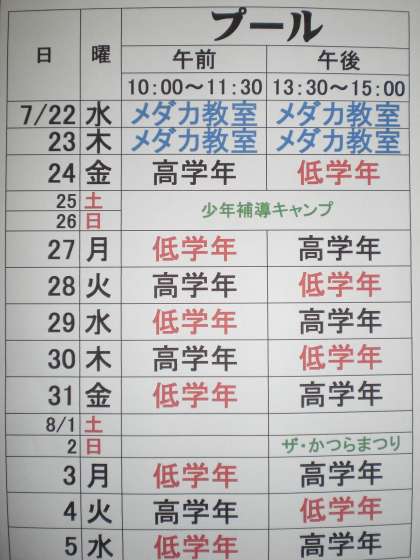 プール
日 曜 午前 午後
10:00～11:30 13:30～15:00
7/22 水 メダカ教室 メダカ教室
23 木 メダカ教室 メダカ教室
24 金 高学年 低学年
25 土
少年補導キャンプ
26 日
27 月 低学年 高学年
28 火 高学年 低学年
29 水 低学年 高学年
30 木 高学年 低学年
31 金 低学年 高学年
8/1 土
2 日 ザ・かつらまつり
3 月 低学年 高学年
4 火 高学年 低学年
5 水 低学年 高学年